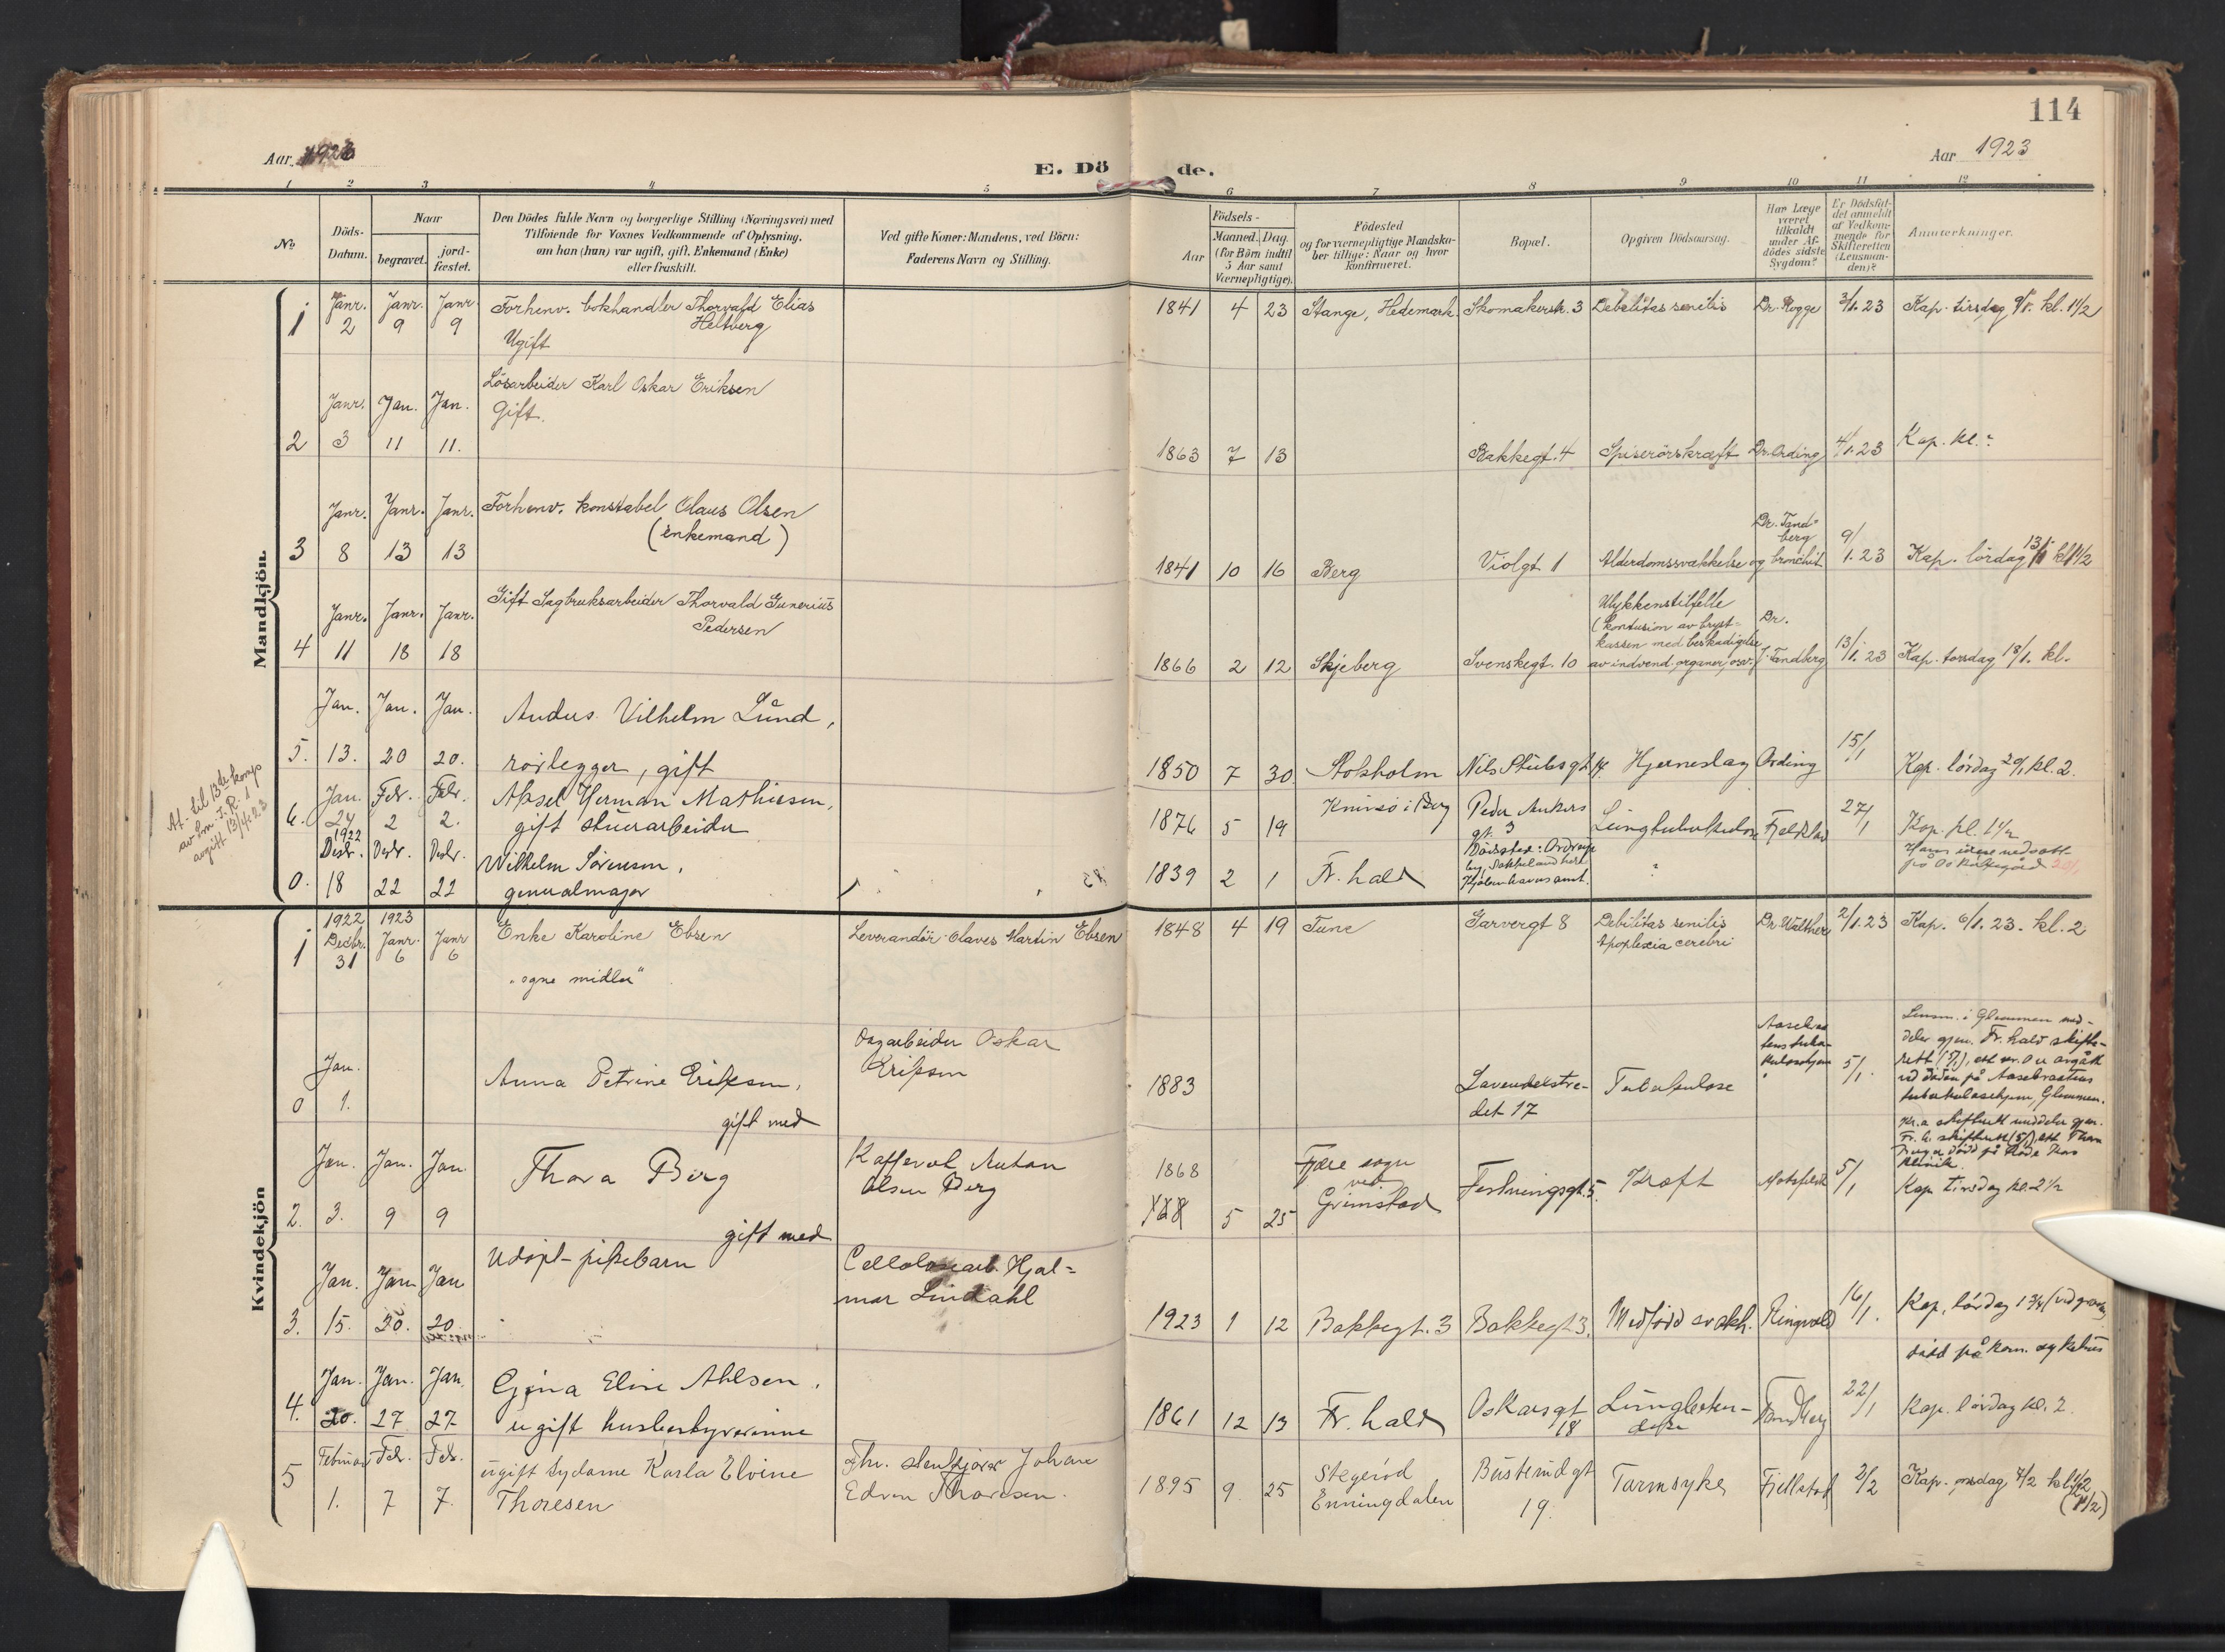 114
Aar 1923
E. Dö
de.
Aar 1923
1 2 3 4 5 6 7 8 9 10 11 12
No
Döds-
Datum.
Naar
begravet.
jord-
fæstet.
Den Dödes fulde Navn og borgerlige Stilling (Næringsvei) med
Tilföiende for Voxnes Vedkommende af Oplysning,
om han (hun) var ugift, gift, Enkemand (Enke)
eller fraskilt.
Ved gifte Koner: Mandens, ved Börn:
Faderens Navn og Stilling.
Födsels-
Aar
Maaned. Dag.
(for Börn indtil
5 Aar samt
Værnepligtige).
Födested
og for værnepligtige Mandska-
ber tillige: Naar og hvor
konfirmeret.
Bopæl.
Opgiven Dödsaarsag.
Har Læge
været
tilkaldt
under Af-
dödes sidste
Sygdom?
Er Dödsfal-
det anmeldt
af Vedkom-
mende for
Skifteretten
(Lensman-
den)?
Anmærkninger.
Mandkjön.
1 Janr. 2 Janr. 9 Janr. 9
Forhenv. bokhandler Thorvald Elias
Heltberg
Ugift
1841 4 23 Stange, Hedemark. Skomakerstr. 3 Debilitas senilis Dr. Rogge 3/1.23 Kap. tirsdag 9/1. kl. 1 1/2
2 Janr. 3 Jan. 11 Jan. 11.
Lösarbeider Karl Oskar Eriksen
Gift.
1863 7 13 Bakkegt. 4 Spiserörskræft Dr. Ording 4/1.23 Kap. kl. ?
3 Janr. 8 Janr. 13 Janr. 13
Forhenv. konstabel Olaus Olsen
(enkemand)
1841 10 16 Berg Violgt 1 Alderdomssvakkelse og bronchit
Dr. Tand-
berg
9/1.23 Kap. lördag 13/1 kl 1 1/2
4 Janr. 11 Janr. 18 Janr. 18
Gift Sagbruksarbeider Thorvald Gunerius
Pedersen
1866 2 12 Skjeberg Svenskegt. 10
Ulykkenstilfelle
(kontusion av bryst-
kassen med beskadigelse
av indvend. organer, osv.
Dr.
J. Tandberg 13/1.23 Kap. torsdag 18/1. kl.
5. Jan. 13. Jan. 20 Jan. 20.
Vilhelm Lund,
rörlegger, gift
1850 7 30 Stokholm Nils Stubs gt 14. Hjerneslag Ording 15/1 Kap. lördag 20/1 kl. 2.
At. til 13de komp
av
avgitt 13/4 23
6. Jan. 24 Febr. 2 Febr. 2.
Aksel Herman Mathisen,
gift stuerarbeider
1876 5 19 i Berg
Peder Ankers
gt. 3
Lungtuberkulose Fjeldstad 27/1 Kap. kl. 1 1/2
0. 1922 Desbr. 18 Desbr. 22 Desbr. 22
Wilhelm Sörensen,
generalmajor
1839 2 1 Fr. hald
Dödssted:
Kjøbenhavns amt.
?
nedsatt
på
Kvindekjön
1 1922 Decbr. 31 1923 Janr. 6 Janr 6
Enke Karoline Ebsen
"egne midler"
Leverandör Olaves Martin Ebsen
1848 4 19 Tune Garvergt 8
Debilitas senilis
Apoplexia cerebri
Dr. Walther 2/1.23 Kap. 6/1.23. kl. 2
0 Jan. 1.
Anna Petrine Eriksen,
gift med
Dagarbeider Oskar
Eriksen
1883
Lavendelstre-
det 17
Tuberkulose
5/1.
Lensm. i Glemmen med-
deler gjen. Fr. hald skifte-
rett (5/1), att nr. 0 er avgått
ved döden på Aasebraatens
tuberkulosehjem, Glemmen.
2. Jan. 3. Jan. 9 Jan. 9
Thora Berg
gift med
Anton
Olsen Berg
1868 5 25
Fjære sogn
ved
Grimstad
Festningsgt. 5. Kræft 5/1
Kr.a skifterett meddeler gjen.
Fr. h. skifterett (5/1), att Thora
Berg er död på Röde Kors
klinik.
Kap tirsdag kl. 2 1/2
3. Jan. 15. Jan 20. Jan 20.
Udöpt pikebarn
Hjal-
mar Lindahl
1923 1 12 Bakkegt. 3 Bakkegt 3. Medfödd svakh. Ringvold 16/1. Kap. lördag 1 3/4
4. Jan. 20. Jan. 27 Jan. 27
Gjina Elise Ahlsen,
ugift husbestyrerinne
1861 12 13 Fr. hald
Oskarsgt
18
Lungbeten-
delse
Tandberg 22/1
död på kom. sykehus
Kap. lördag kl. 2
5 Februar 1. Febr. 7 Febr. 7.
ugift sydame Karla Elvine
Thoresen
Fhv. stenkjörer Johan
Edvin Thoresen.
1895 9. 25
Stegeröd
Enningdalen
Busterudgt
19.
Tarmsyke Fjellstad 2/2 Kap. onsdag 7/2 kl 1 1/2
(1 1/2)